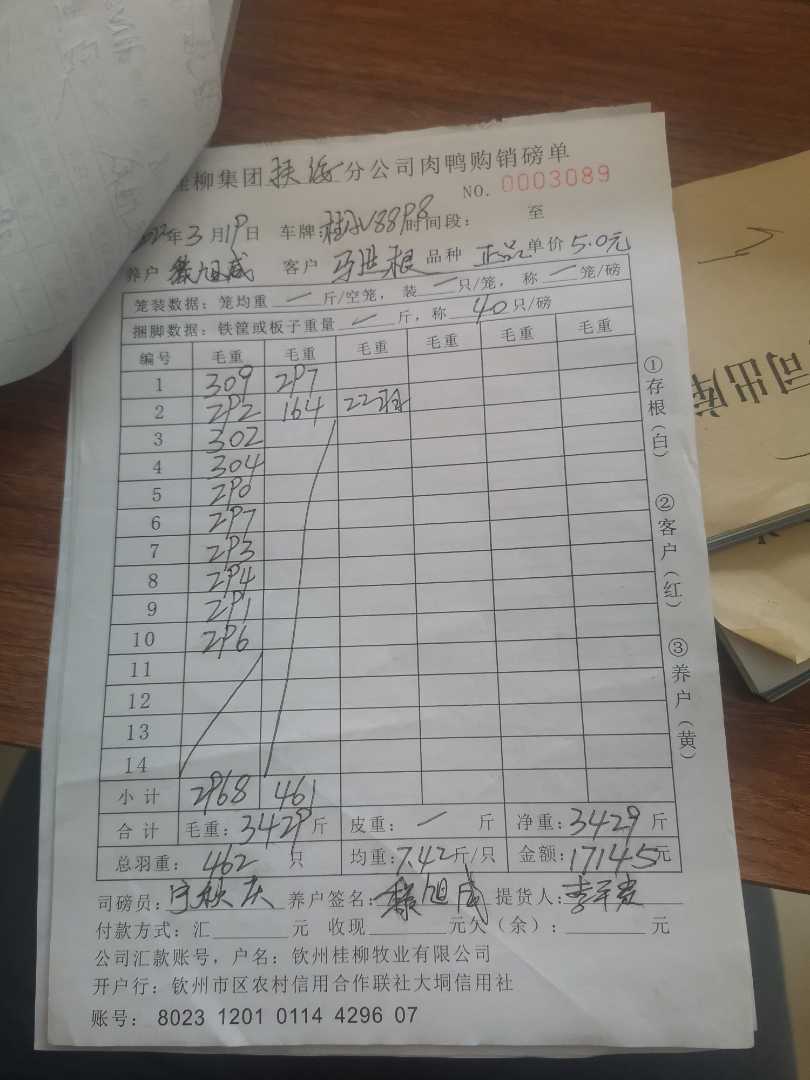 桂柳集团扶绥分公司肉鸭购销磅单
NO. 0003089
2022年3月19日 车牌: 时间段: 至
养户 黎旭威 客户 马胜根 品种 正品 单价 5.0元
笼装数据: 笼均重 一 斤/空笼, 装 一 只/笼, 称 一 笼/磅
捆脚数据: 铁筐或板子重量 一 斤, 称 40 只/磅
编号 毛重 毛重 毛重 毛重 毛重 毛重
1 309 297
2 292 164 22羽
3 302
4 304
5 290
6 297
7 293
8 294
9 291
10 296
11
12
13
14
小计 2968 461
合计 毛重: 3429 斤 皮重: 一 斤 净重: 3429 斤
总羽重: 462 只 均重: 7.42 斤/只 金额: 17145 元
司磅员: 宁秋庆 养户签名: 黎旭威 提货人:
付款方式: 汇 元 收现 元 欠(余): 元
公司汇款账号, 户名: 钦州桂柳牧业有限公司
开户行: 钦州市区农村信用合作联社大垌信用社
账号: 8023 1201 0114 4296 07
①存根(白) ②客户(红) ③养户(黄)
司出库